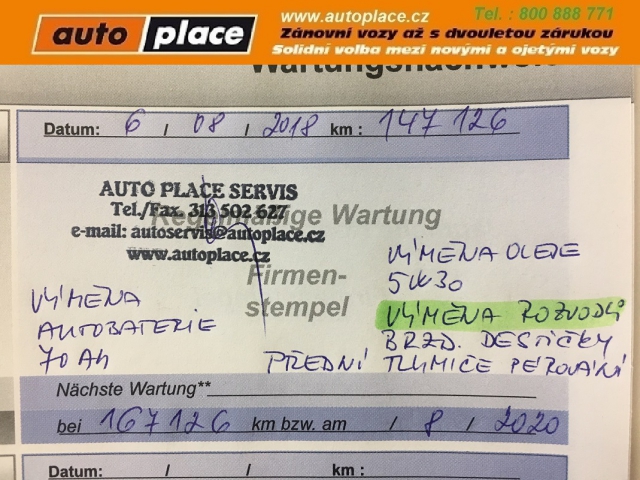 www.autoplace.cz
Tel. : 800 888 771
auto place
Zánovní vozy až s dvouletou zárukou
Solidní volba mezi novými a ojetými vozy
Wartungsnachweis
Datum: 6 / 08 / 2018 km : 147 126
AUTO PLACE SERVIS
Tel./Fax. 313 502 627
e-mail: autoservis@autoplace.cz
www.autoplace.cz
Regelmäßige Wartung
Firmen-
stempel
VÝMĚNA
AUTOBATERIE
70 Ah
VÝMĚNA OLEJE
5W30
VÝMĚNA ROZVODŮ
BRZD. DESTIČKY
PŘEDNÍ TLUMIČE PÉROVÁNÍ
Nächste Wartung**
bei 167 126 km bzw. am / 8 / 2020
Datum: / / km :